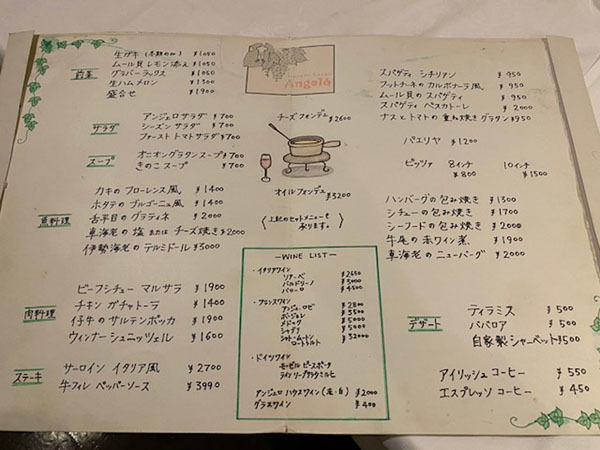 前菜
生ガキ (冬期のみ) ¥1050
ムール貝レモン添え ¥1050
グラバーラックス ¥1050
生ハムメロン ¥1300
盛合せ ¥1900
サラダ
アンジェロサラダ ¥700
シーズンサラダ ¥700
ファーストトマトサラダ ¥700
スープ
オニオングラタンスープ ¥700
きのこスープ ¥700
魚料理
カキのフローレンス風 ¥1400
ホタテのブルゴーニュ風 ¥1400
舌平目のグラティネ ¥2000
車海老の塩またはチーズ焼き ¥2000
伊勢海老のテルミドール ¥3000
肉料理
ビーフシチューマルサラ ¥1900
チキンガチャトーラ ¥1400
仔牛のサルテンボッカ ¥1900
ウィンナーシュニッツェル ¥1600
ステーキ
サーロインイタリア風 ¥2700
牛フィレペッパーソース ¥3990
Angelo
チーズフォンデュ ¥2600
オイルフォンデュ ¥3200
〈上記のホットメニューも承ります。〉
WINE LIST
・イタリアワイン
ソアーベ ¥2650
バルドリーノ ¥3000
バローロ ¥4500
・フランスワイン
¥2800
ボージョレ ¥3500
メドック ¥5000
シャブリ ¥5000
シャトームートン
ロートシルト ¥32000
・ドイツワイン
モーゼルピースポーター
アンジェロハウスワイン (赤・白) ¥2000
グラスワイン ¥400
スパゲティシチリアン ¥950
フットチーネのカルボナーラ風 ¥950
ムール貝のスパゲティ ¥950
スパゲティペスカトーレ ¥2000
ナスとトマトの重ね焼きグラタン ¥950
パエリヤ ¥1200
ピッツァ 8インチ 10インチ
¥800 ¥1500
ハンバーグの包み焼き ¥1300
シチューの包み焼き ¥1700
シーフードの包み焼き ¥2000
牛尾の赤ワイン煮 ¥1900
車海老のニューバーグ ¥2000
デザート
ティラミス ¥500
ババロア ¥500
自家製シャーベット ¥500
アイリッシュコーヒー ¥550
エスプレッソコーヒー ¥450